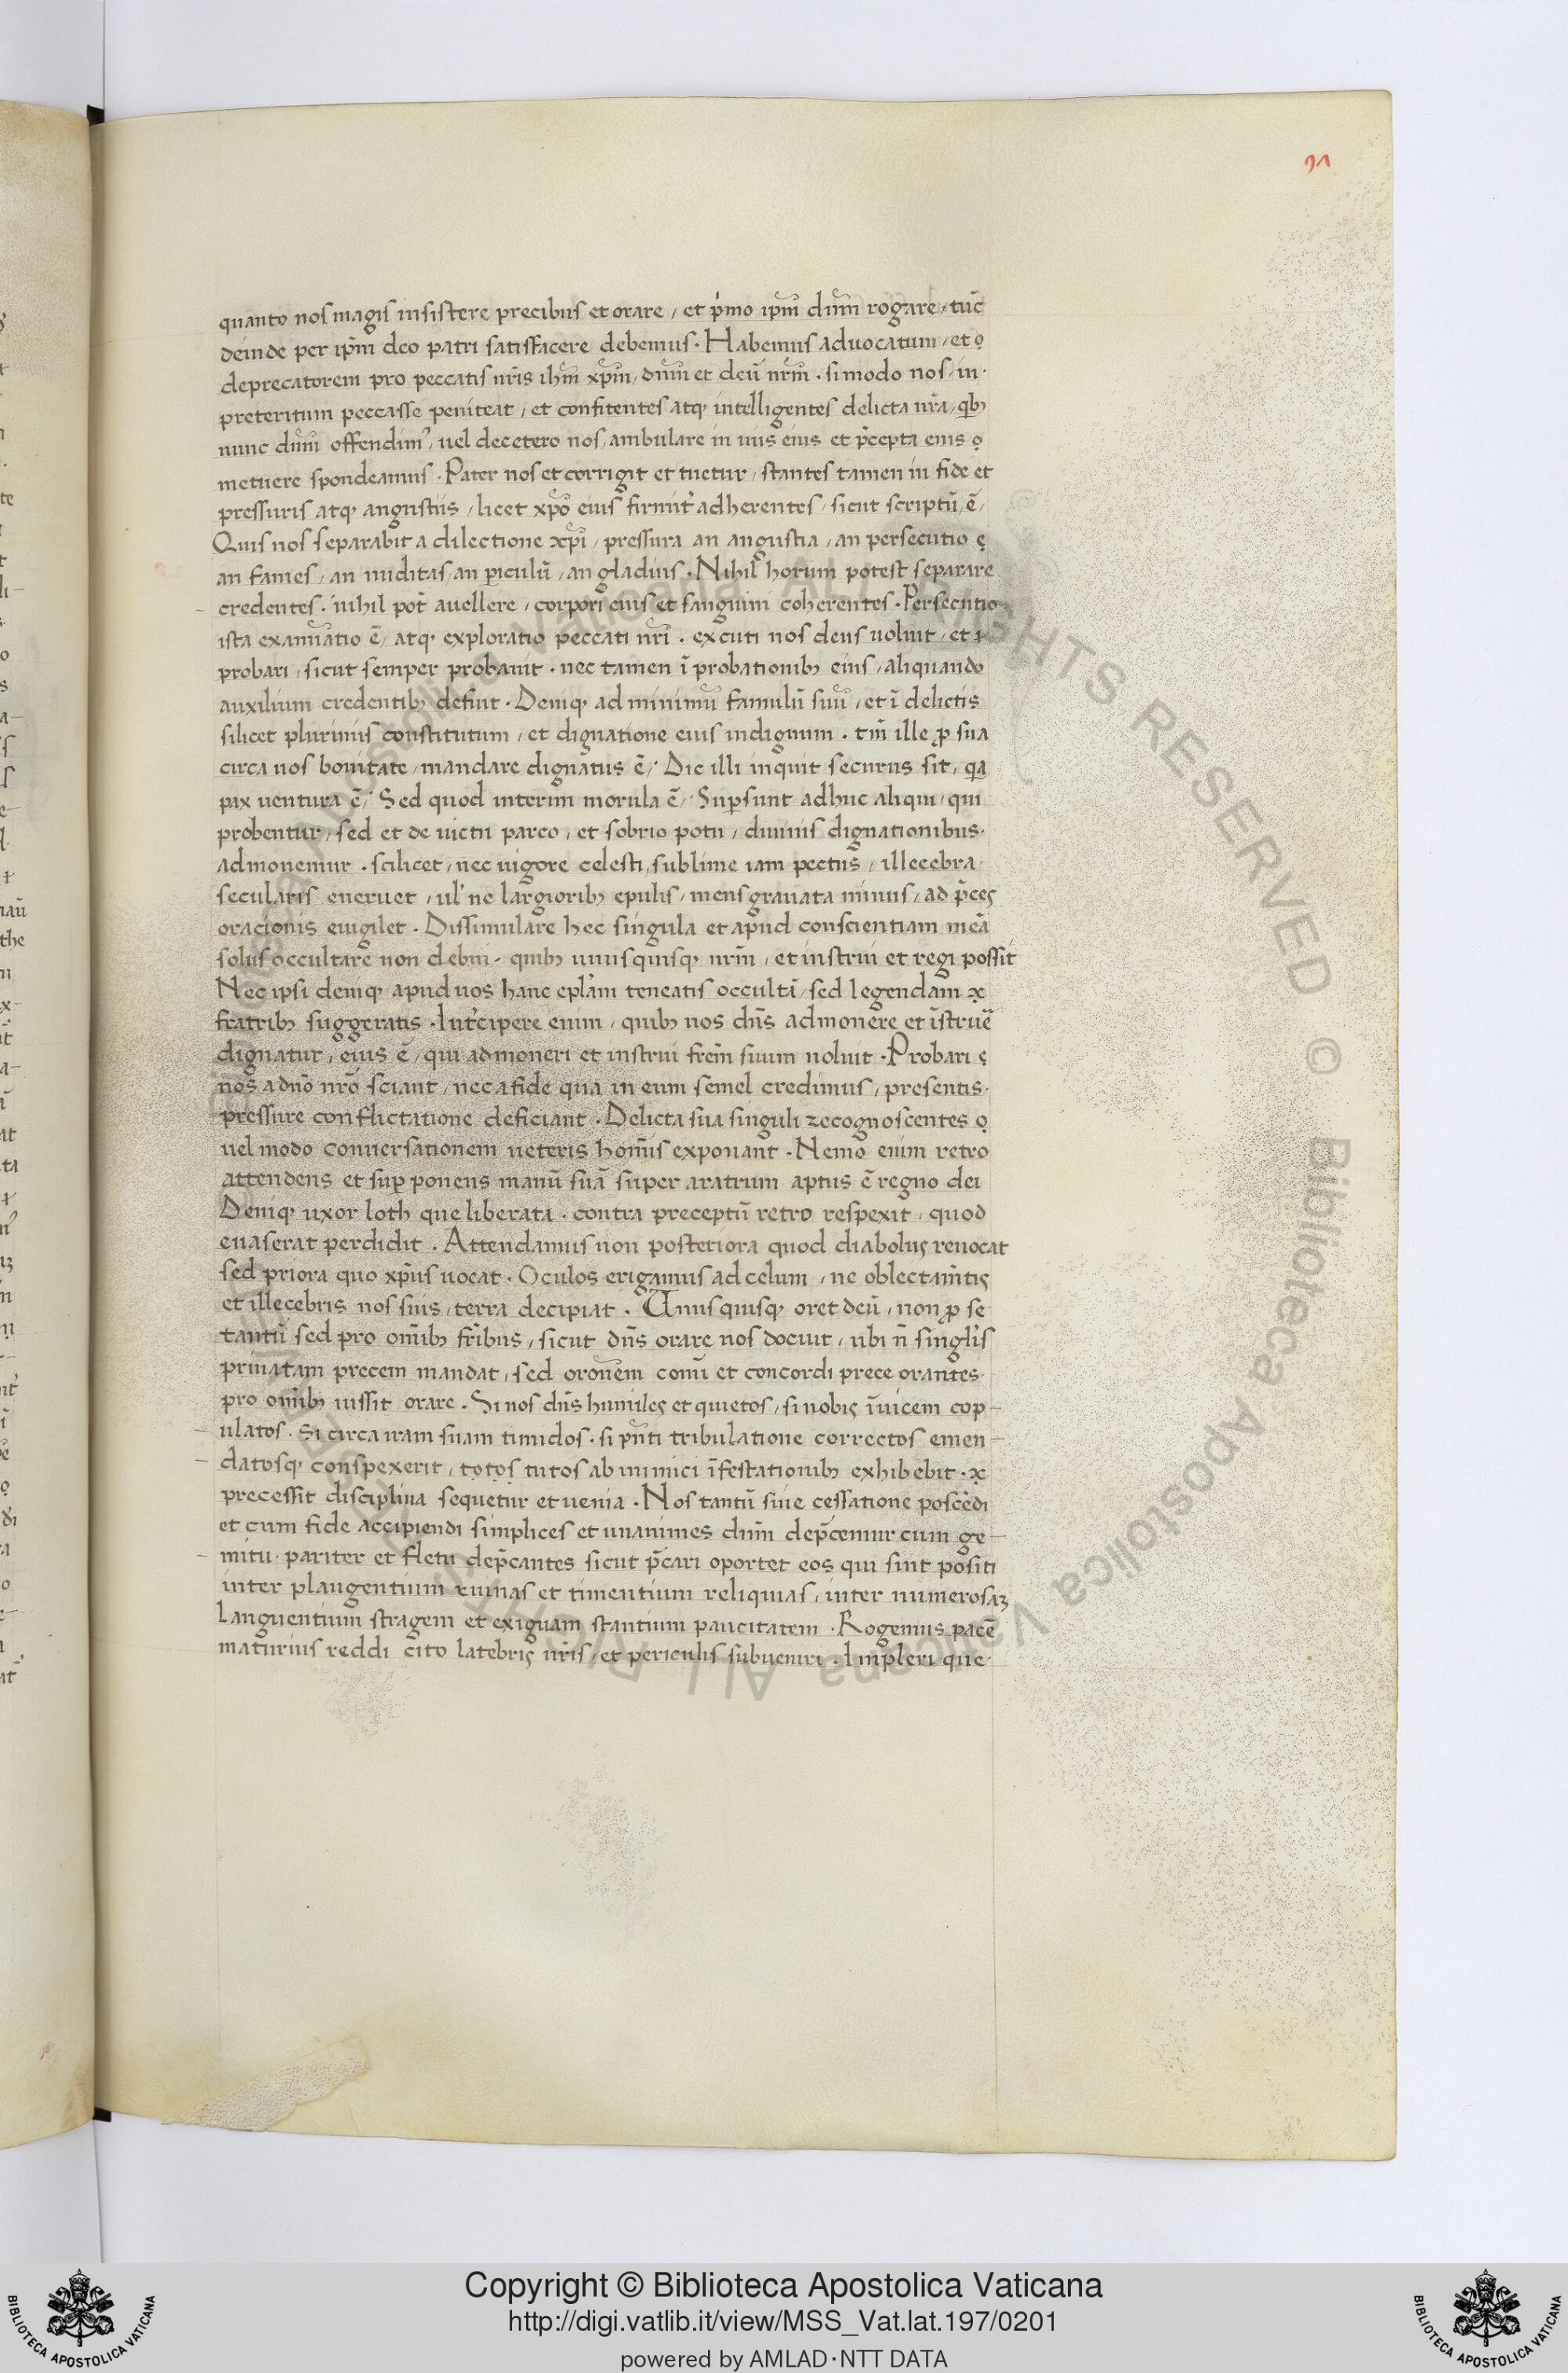 91
quanto nos magis insistere precibus et orare, et p̓mo ip̄m dn̄m rogare, tūc
deinde per ip̄m deo patri satisfacere debemus. Habemus aduocatum, et
deprecatorem pro peccatis nr̄is ihm̄ xp̄m, dn̄m et deū nr̄m. si modo nos in
preteritum peccasse peniteat, et confitentes atq intelligentes delicta nr̄a, qb
nunc dn̄m offendim᾽, uel decetero nos, ambulare in uiis eius et p̄cepta eius
metuere spondeamus. Pater nos et corrigit et tuetur, stantes tamen in fide et
pressuris atq angustiis, licet xp̄o eius firmit̓ adherentes, sicut scriptū ē,
Quis nos separabit a dilectione xp̄i, pressura an angustia, an persecutio
an fames, an nuditas, an ꝑiculū, an gladius. Nihil horum potest separare
credentes. nihil pot̄ auellere, corpori eius et sanguini coherentes. Persecutio
ista examīatio ē, atq exploratio peccati nr̄i. excuti nos deus uoluit, et
probari, sicut semper probauit. nec tamen ī probationib eius, aliquando
auxilium credentib defuit. Deniq ad minimū famulū suū, et ī delictis
silicet plurimis constitutum, et dignatione eius indignum. tn̄ ille ꝓ sua
circa nos bonitate, mandare dignatus ē, Dic illi inquit securus sit, qa
pax uentura ē, Sed quod interim morula ē, Supsunt adhuc aliqui, qui
probentur, sed et de uictu parco, et sobrio potu, diuinis dignationibus
admonemur. scilicet, nec uigore celesti, sublime iam pectus, illecebra
secularis eneruet, ul᾽ ne largiorib epulis, mens grauata minus, ad p̄ces
oracionis euigilet. Dissimulare hec singula et apud conscientiam meā
solus occultare non debui, quib unusquisq nrm̄, et instrui et regi possit
Nec ipsi deniq apud uos hanc epl̓am teneatis occultā, sed legendam
fratrib suggeratis. Int̓cipere enim, quib nos dn̄s admonere et īstruē
dignatur, eius ē, qui admoneri et instrui frēm suum noluit. Probari
nos a dn̄o nr̄o sciant, nec a fide qua in eum semel credimus, presentis
pressure conflictatione deficiant. Delicta sua singuli recognoscentes
uel modo conuersationem ueteris hom̄is exponant. Nemo enim retro
attendens et suꝑ ponens manū suā super aratrum aptus ē regno dei
Deniq uxor loth que liberata. contra preceptū retro respexit, quod
euaserat perdidit. Attendamus non posteriora quod diabolus reuocat
sed priora quo xp̄us uocat. Oculos erigamus ad celum, ne oblectam̄tis
et illecebris nos suis, terra decipiat. Unusquisq oret deū, non ꝓ se
tantū sed pro om̄ib fr̄ibus, sicut dn̄s orare nos docuit, ubi n̄ singl̓is
priuatam precem mandat, sed oronem comūi et concordi prece orantes
pro om̄ib iussit orare. Si nos dn̄s humiles et quietos, si nobis īuicem cop-
ulatos. Si circa iram suam timidos. si pn̄ti tribulatione correctos emen-
datosq conspexerit, totos tutos ab inimici īfestationib exhibebit.
precessit disciplina sequetur et uenia. Nos tantū sine cessatione poscēdi
et cum fide accipiendi simplices et unanimes dn̄m dep̄cemur cum ge-
mitu. pariter et fletu dep̄cantes sicut p̄cari oportet eos qui sint positi
inter plangentium ruinas et timentium reliquias, inter numerosaz
Languentium stragem et exiguam stantium paucitatem. Rogemus pacē
maturius reddi cito latebris nr̄is, et periculis subueniri. Impleri que
Copyright © Biblioteca Apostolica Vaticana
http://digi.vatlib.it/view/MSS_Vat.lat.197/0201
powered by AMLAD·NTT DATA
BIBLIOTECA APOSTOLICA VATICANA
BIBLIOTECA APOSTOLICA VATICANA